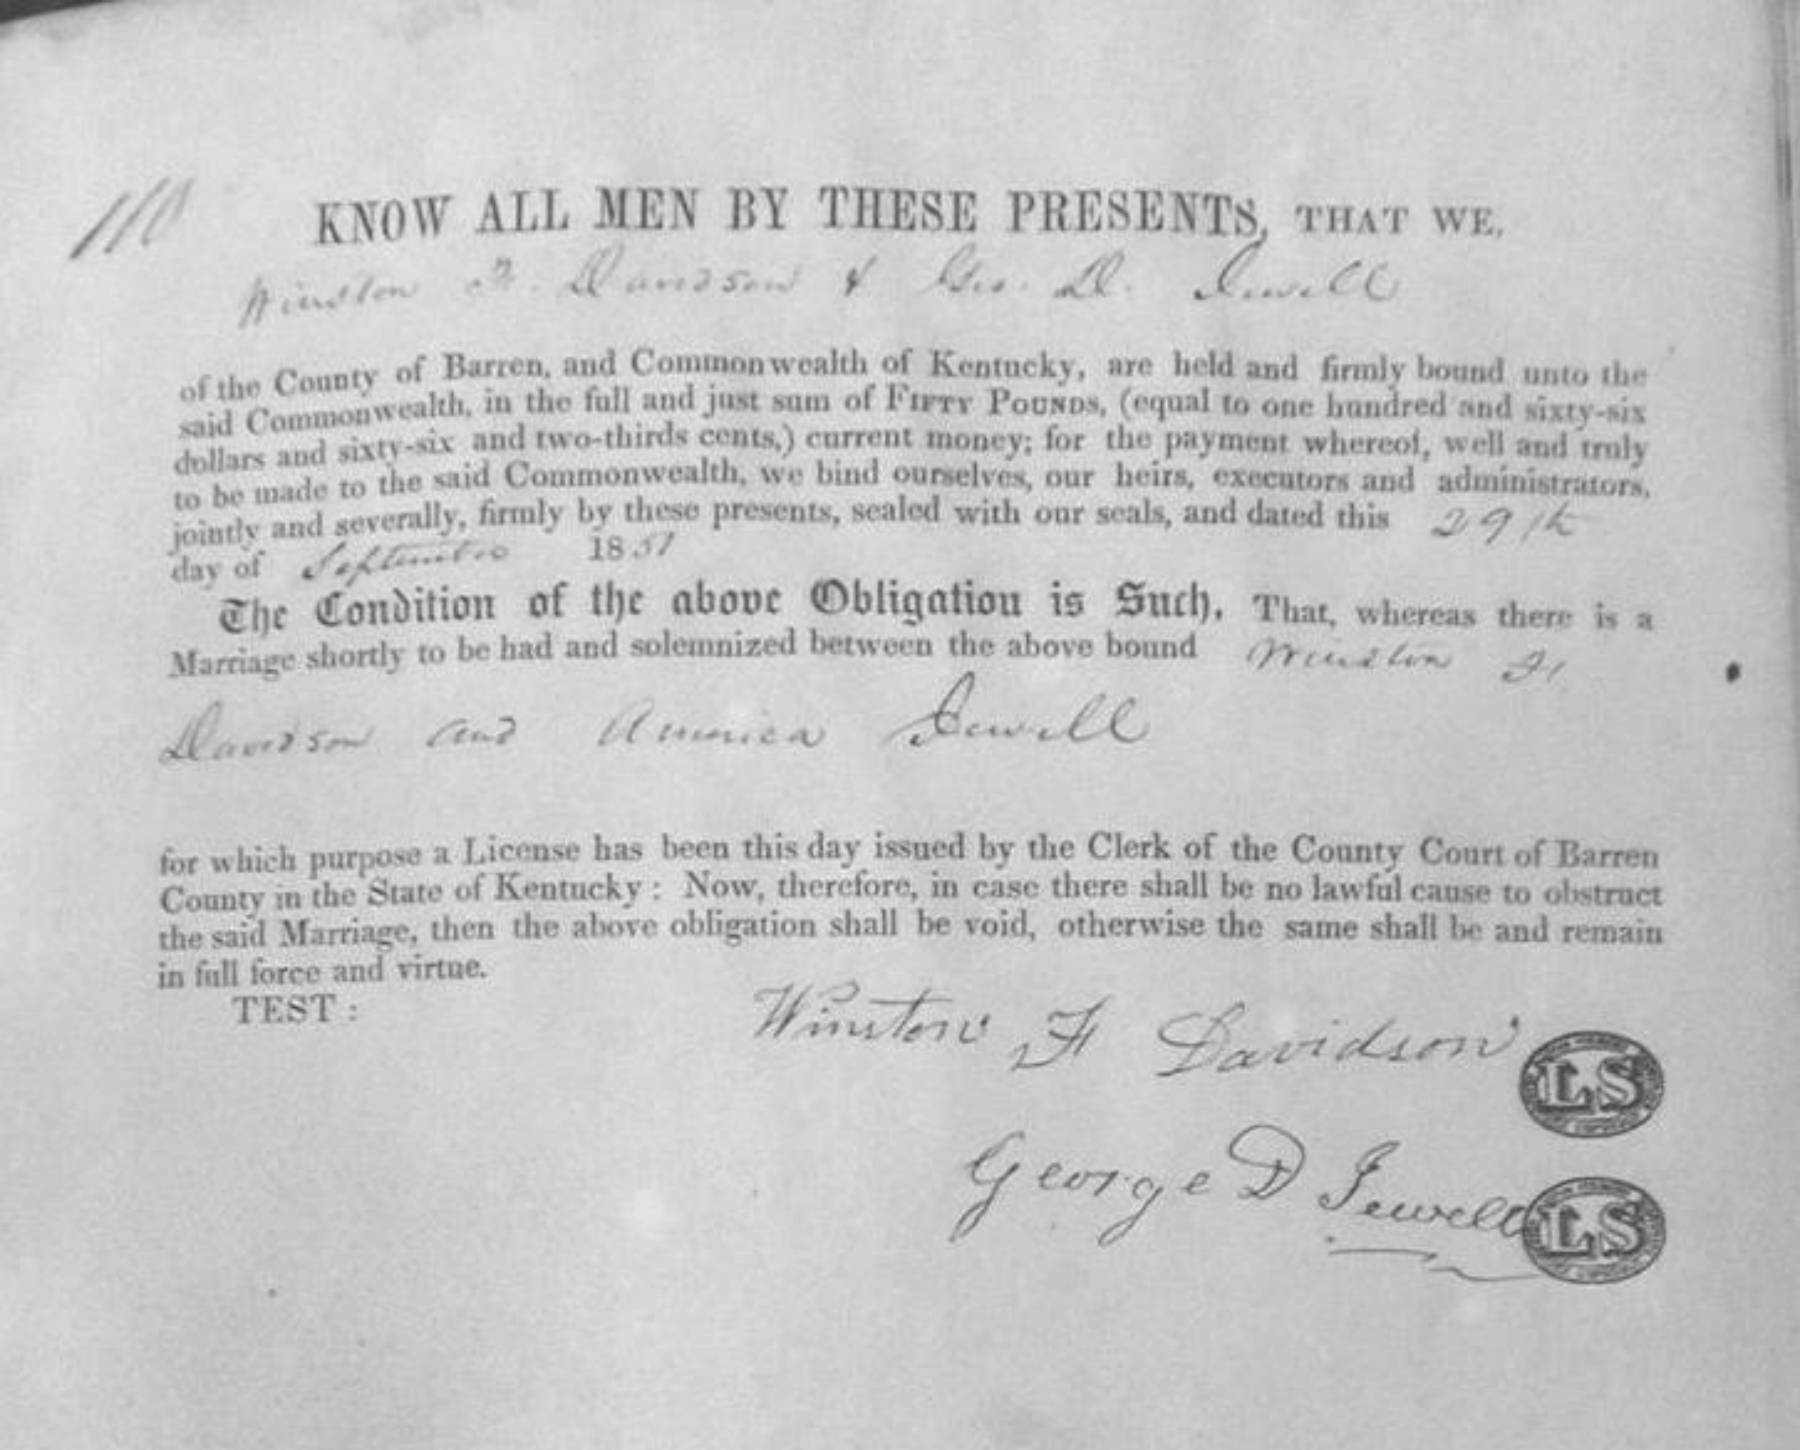 110
KNOW ALL MEN BY THESE PRESENTS, THAT WE,
Winston F. Davidson & Geo. D. Jewell
of the County of Barren, and Commonwealth of Kentucky, are held and firmly bound unto the
said Commonwealth, in the full and just sum of FIFTY POUNDS, (equal to one hundred and sixty-six
dollars and sixty-six and two-thirds cents,) current money; for the payment whereof, well and truly
to be made to the said Commonwealth, we bind ourselves, our heirs, executors and administrators,
jointly and severally, firmly by these presents, sealed with our seals, and dated this 29th
day of September 1851
The Condition of the above Obligation is Such, That, whereas there is a
Marriage shortly to be had and solemnized between the above bound Winston F.
Davidson and America Jewell
for which purpose a License has been this day issued by the Clerk of the County Court of Barren
County in the State of Kentucky: Now, therefore, in case there shall be no lawful cause to obstruct
the said Marriage, then the above obligation shall be void, otherwise the same shall be and remain
in full force and virtue.
TEST:
Winston F Davidson LS
George D Jewell LS